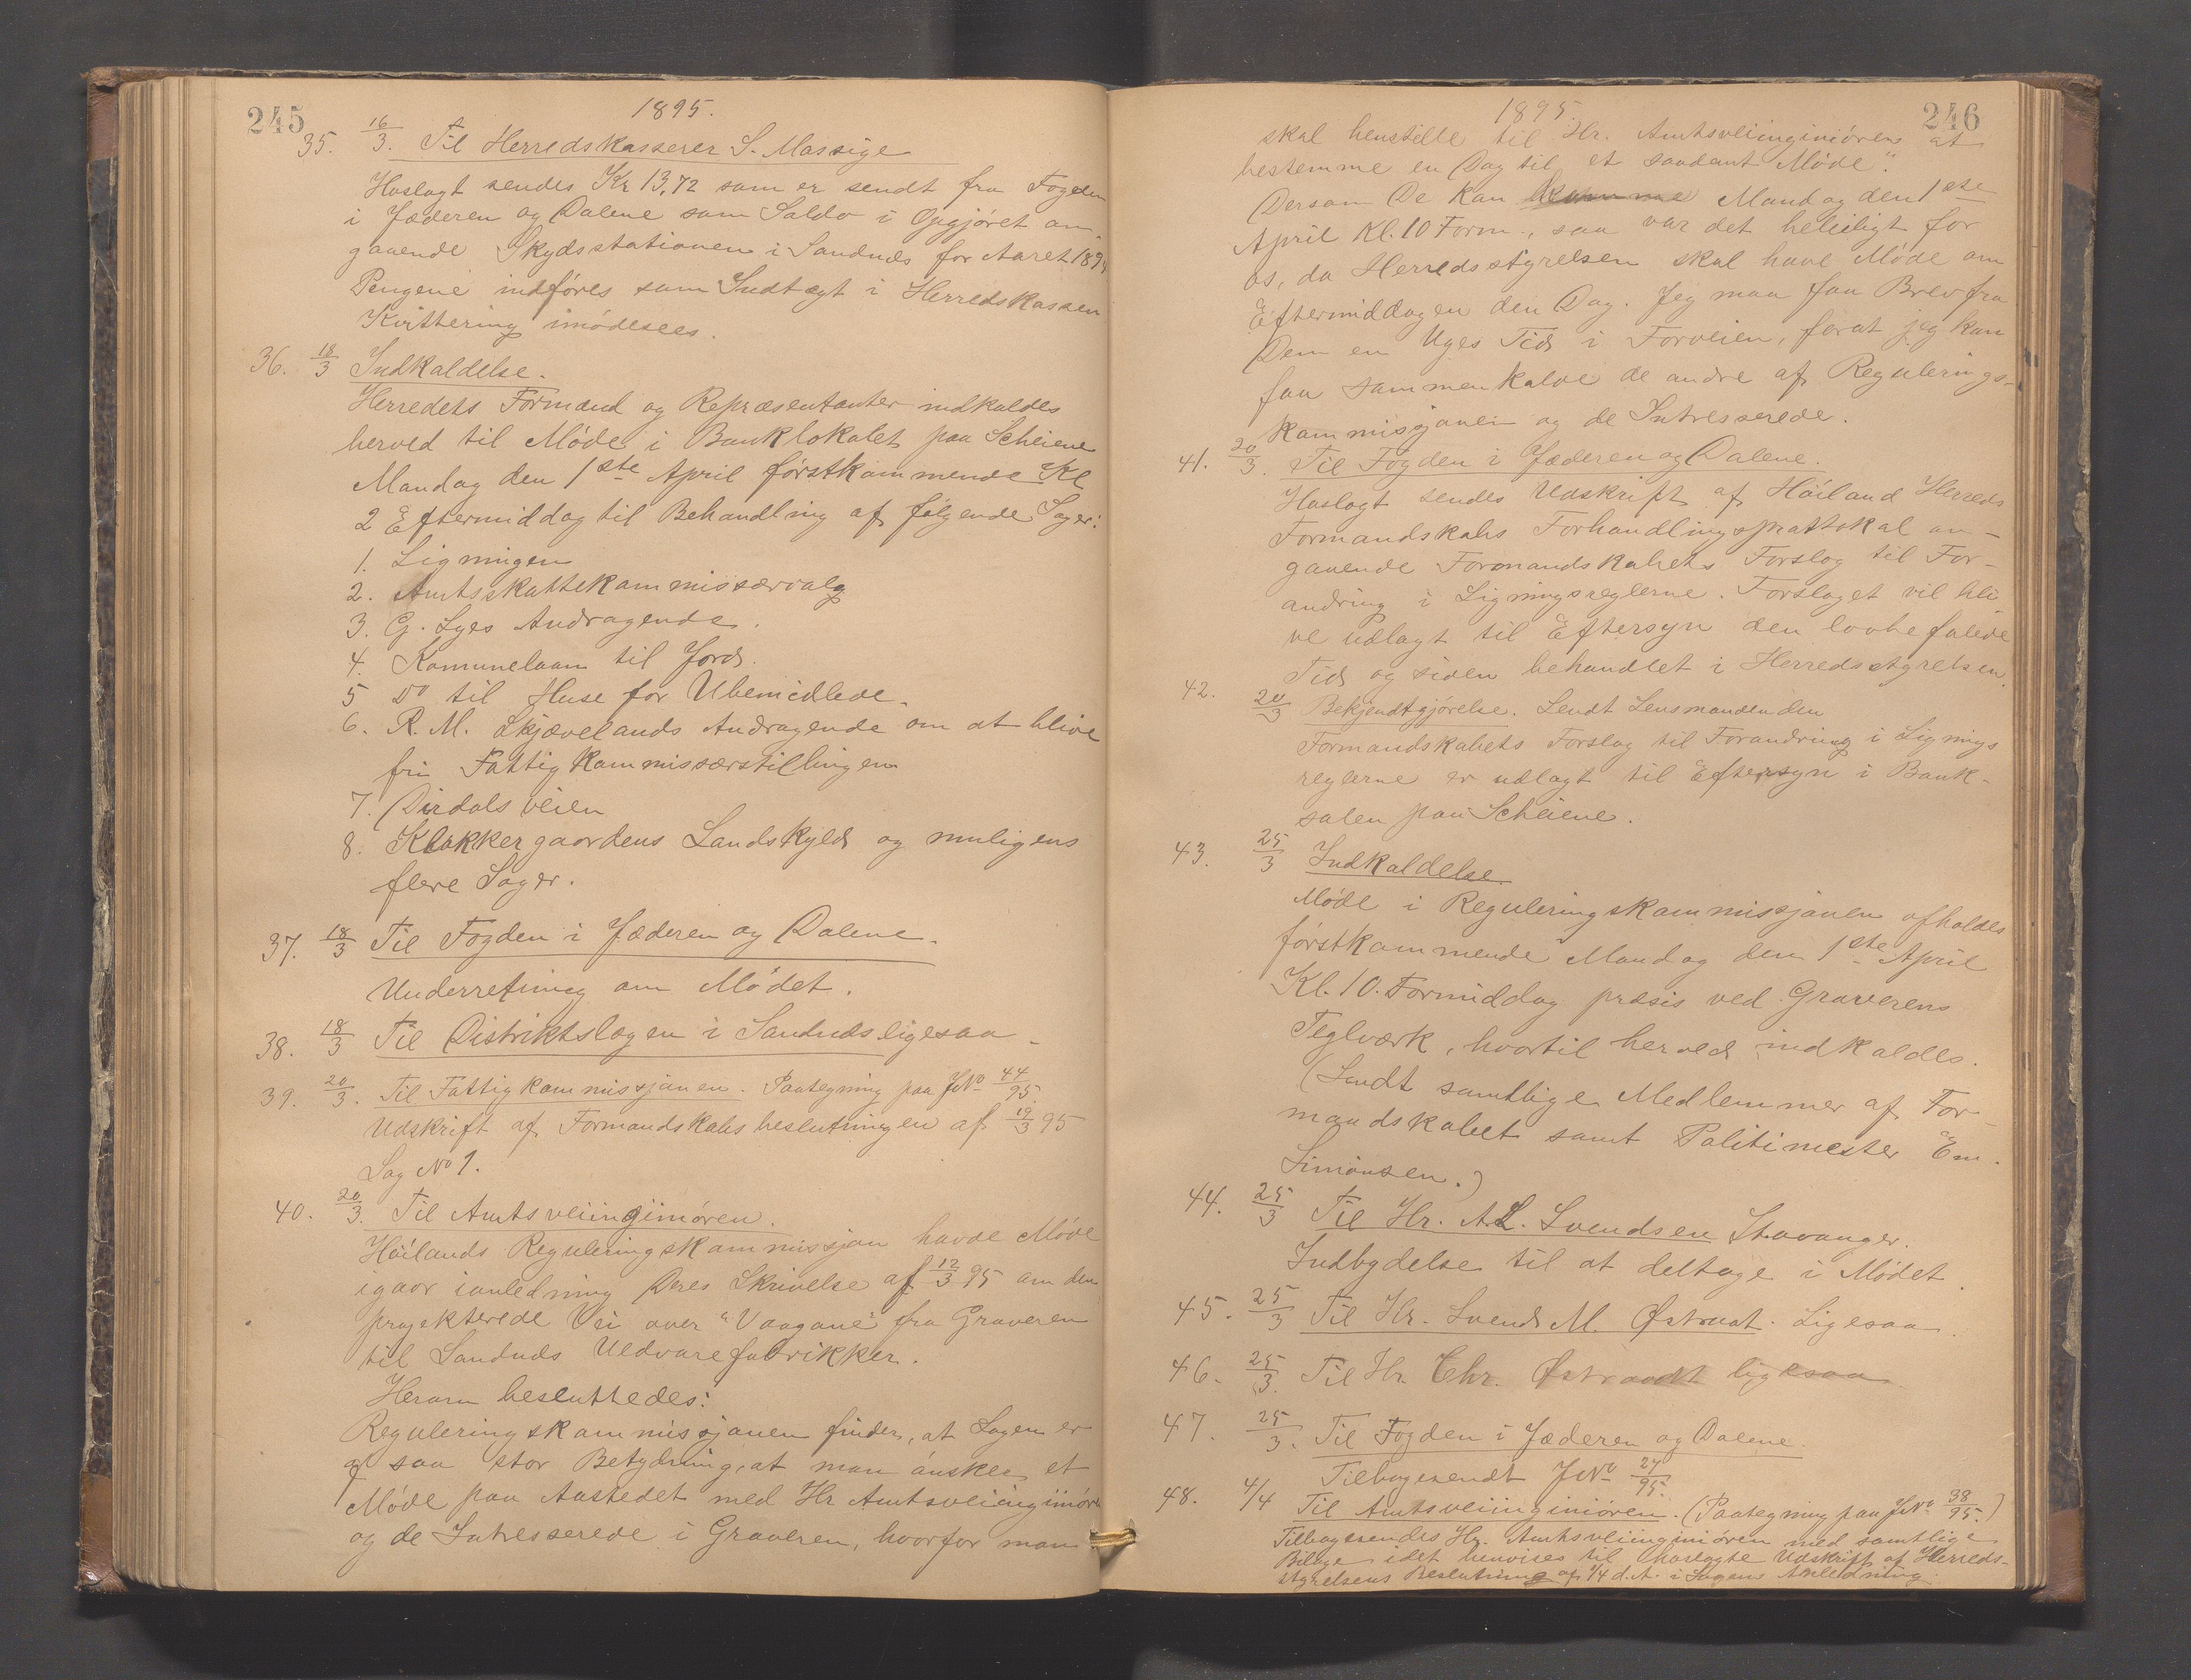 245
1895.
35. 16/3. Til Herredskasserer S. Massige
Hoslagt sendes Kr 13,72 som er sendt fra Fogden
i Jæderen og Dalene som Saldo i Opgjøret an-
gaaende Skydsstationen i Sandnæs for Aaret 1894
Pengene indføres som Indtægt i Herredskassen
Kvittering imødesees.
36. 18/3 Indkaldelse.
Herredets Formænd og Repræsentanter indkaldes
herved til Møde i Banklokalet paa Scheiene
Mandag den 1ste April førstkommende Kl
2 Eftermiddag til Behandling af følgende Sager:
1. Ligningen
2. Amtsskattekommissærvalg
3. G. Lyes Andragende.
4. Komunelaan til Jord.
5 Do til Huse for Ubemidlede.
6. R. M. Skjævelands Andragende om at blive
fri Fattigkommissærstillingen
7. Dirdalsveien
8. Klokkergaardens Landskyld og muligens
flere Sager.
37. 18/3 Til Fogden i Jæderen og Dalene.
Underretning om Mødet.
38. 18/3 Til Distriktslægen i Sandnæs ligesaa
39. 20/3. Til Fattigkommissjonen. Paategning paa JNo 44/95.
Udskrift af Formandskabsbeslutningen af 19/3 95
Sag No 1.
40. 20/3. Til Amtsveiinginiøren.
Høilands Reguleringskommissjon havde Møde
igaar ianledning Deres Skrivelse af 12/3 95 om den
projekterede Vei over "Vaagane" fra Graveren
til Sandnæs Uldvarefabrikker.
Herom besluttedes:
Reguleringskommissjonen finder, at Sagen er
af saa stor Betydning, at man ønsker et
Møde paa Aastedet med Hr Amtsveiinginiøren
og de Intresserede i Graveren, hvorfor man
246
1895.
skal henstille til Hr. Amtsveiinginiøren at
bestemme en Dag til et saadant Møde".
Dersom De kan komme Mandag den 1ste
April Kl. 10 Form., saa var det beleiligt for
os, da Herredsstyrelsen skal have Møde om
Eftermiddagen den Dag. Jeg maa faa Brev fra
Dem en Uges Tid i Forveien, forat jeg kan
faa sammenkalde de andre af Regulerings-
kommissjonen og de Intresserede.
41. 20/3. Til Fogden i Jæderen og Dalene.
Hoslagt sendes Udskrift af Höiland Herreds
Formandskabs Forhandlingsprottokol an-
gaaende Formandskabets Forslag til For-
andring i Ligningsreglerne. Forslaget vil bli-
ve udlagt til Eftersyn den lovbefalede
Tid og siden behandlet i Herredsstyrelsen.
42. 20/3 Bekjendtgjørelse. Sendt Lensmanden den
Formandskabets Forslag til Forandring i Lignings
reglerne er udlagt til Eftersyn i Bank-
salen paa Scheiene.
43. 25/3 Indkaldelse
Møde i Reguleringskommissjonen afholdes
førstkommende Mandag den 1ste April
Kl. 10. Formiddag præsis ved Graverens
Teglværk, hvortil herved indkaldes.
(Sendt samtlige Medlemmer af For-
mandskabet samt Politimester Em.
Simonsen.)
44. 25/3 Til Hr. A.L. Svendsen Stavanger.
Indbydelse til at deltage i Mødet.
45. 25/3 Til Hr. Svend M. Østraat. Ligesaa.
46. 25/3. Til Hr. Chr. Østraadt ligesaa
47. 25/3. Til Fogden i Jæderen og Dalene.
Tilbagesendt JNo 27/95.
48. 4/4 Til Amtsveiinginiøren. (Paategning paa JNo 38/95.)
Tilbagesendes Hr. Amtsveiinginiøren med samtlige
Bilage idet henvises til hoslagte Udskrift af Herreds-
styrelsens Beslutning af 1/4 d.A. i Sagens Anledning.